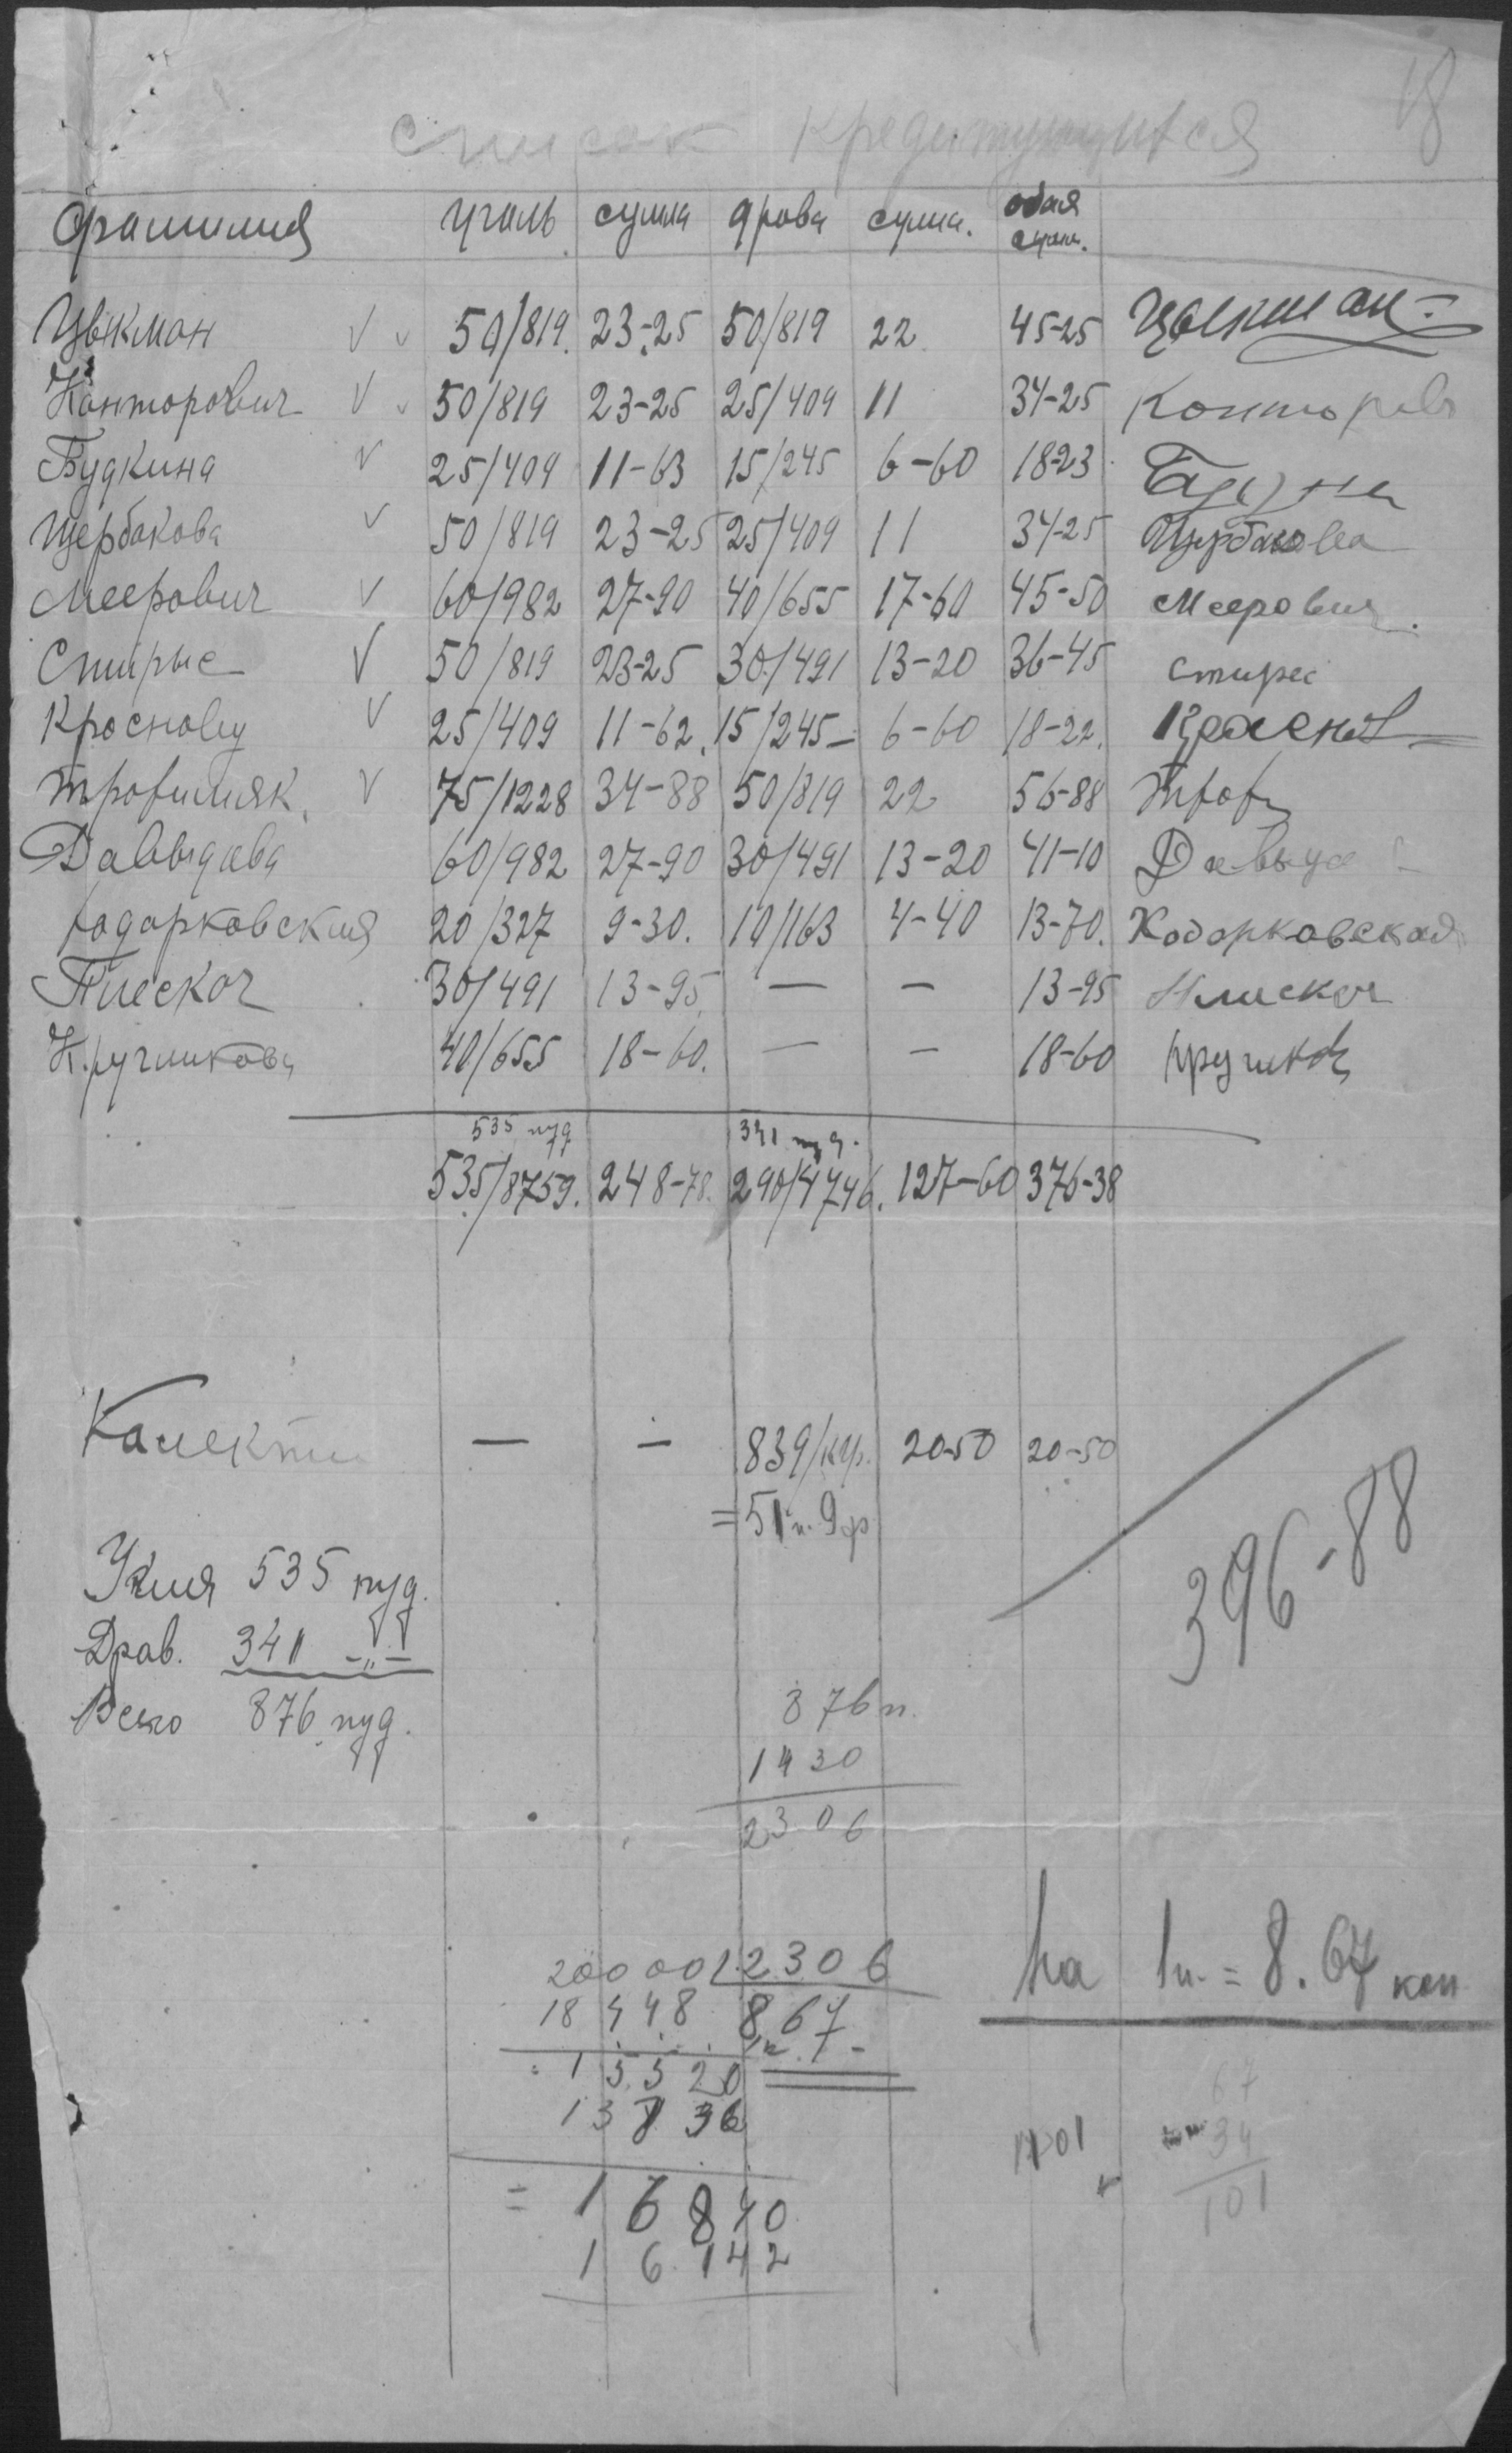 18
список кредитующихся
Фамилия уголь сумма дрова сумма. общая сумм.
Цвикман V v 50/819. 23-25 50/819 22 45-25 Цвикман
Канторович V v 50/819 23-25 25/409 11 34-25 Канторов
Будкина V 25/409 11-63 15/245 6-60 18-23
Щербакова V 50/819 23-25 25/409 11 34-25 Щербакова
Меерович V 60/982 27-90 40/655 17-60 45-50 Меерович.
Спирые V 50/819 23-25 30/491 13-20 36-45
Красновец V 25/409 11-62. 15/245- 6-60 18-22.
Трофимяк. V 75/1228 34-88 50/819 22 56-88 Троф
Давыдова 60/982 27-90 30/491 13-20 41-10 Давыдо
Кодарковская 20/327 9-30. 10/163 4-40 13-70. Кодорковская
Плескач 30/491 13-95 — — 13-95 Плискач
Кручинкова 40/655 18-60. — — 18-60
535 пуд 341 пуд.
535/8759. 248-78. 290/4746. 127-60 376-38
Колекти — — 839/кгр. 20-50 20-50
= 51 п. 9 ф
396-88
Угля 535 пуд.
Дров. 341 -"-
Всего 876 пуд.
876 п.
1430
2306
20000 2306
18448 867
15520
13836
= 16840
16142
На 1 п. = 8.67 коп
67
34
101